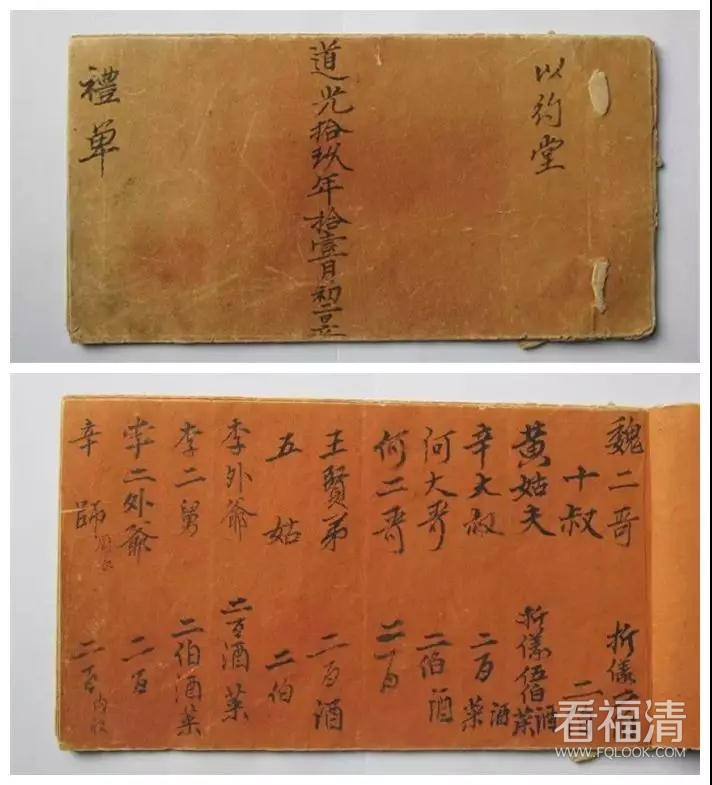 以約堂
道光拾玖年拾壹月初二日
禮单
魏二哥 折儀二百
十叔 二百
黄姑夫 折儀伍伯 酒菜
辛大叔 二百 酒菜
何大哥 二伯酒
何二哥 二百
王賢弟 二百酒
五姑 二伯
李外爺 二百酒菜
李二舅 二伯酒菜
李二外爺 二百
辛師 二百内收
看福清
WWW.FQLOOK.COM